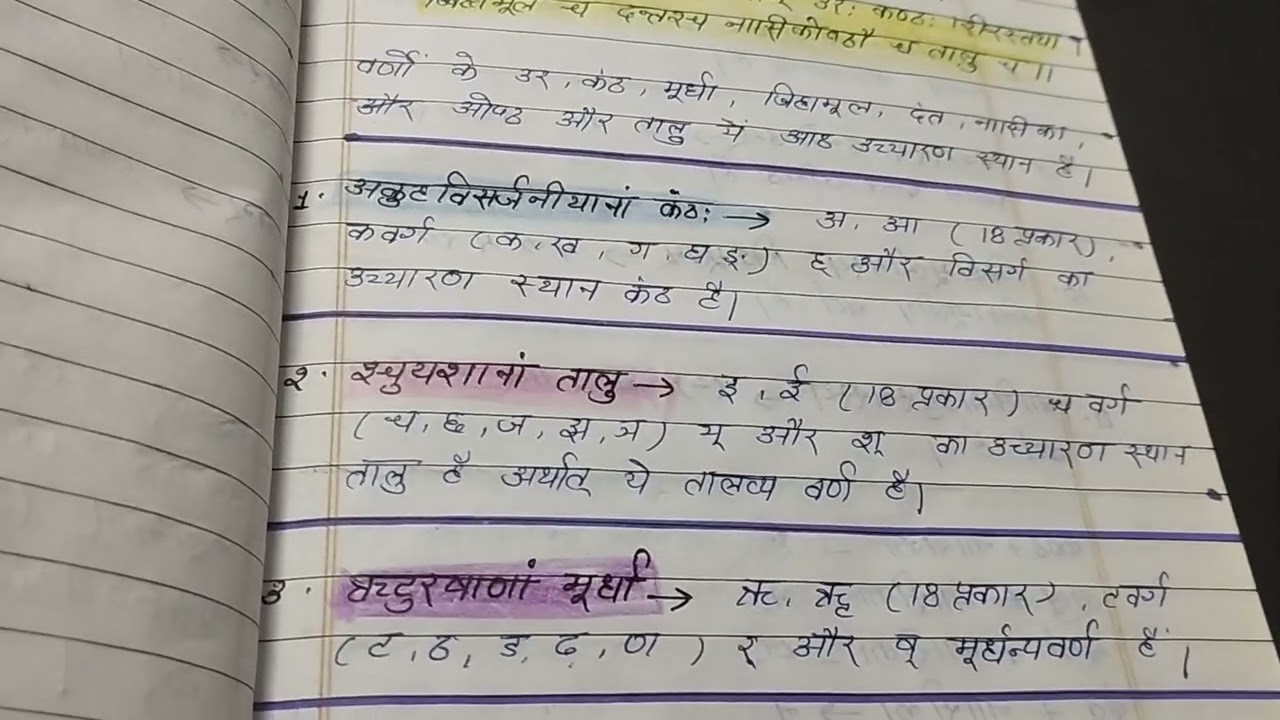 उरः कण्ठः शिरस्तथा ।
जिह्वामूलं च दन्तश्च नासिकोष्ठौ च तालु च ॥
वर्णों के उर, कंठ, मूर्धा, जिह्वामूल, दंत, नासिका,
और ओष्ठ और तालु ये आठ उच्चारण स्थान है।
1. अकुहविसर्जनीयानां कंठः → अ, आ (18 प्रकार),
कवर्ग (क, ख, ग, घ ङ) ह और विसर्ग का
उच्चारण स्थान कंठ है।
२. इचुयशानां तालु → इ, ई (18 प्रकार) च वर्ग
(च, छ, ज, झ, ञ) य् और श् का उच्चारण स्थान
तालु है अर्थात् ये तालव्य वर्ण है।
३. ऋटुरषाणां मूर्धा → ऋ, ॠ (18 प्रकार), टवर्ग
(ट, ठ, ड, ढ, ण) र् और ष् मूर्धन्यवर्ण है।